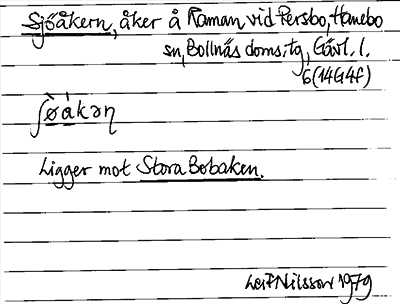 Sjöåkern, åker å Raman, vid Persbo, Hanebo
sn, Bollnäs doms. tg, Gävl. l.
6(14G4f)
ʃø̀ákəɳ
Ligger mot Stora Bobaken.
Leif Nilsson 1979